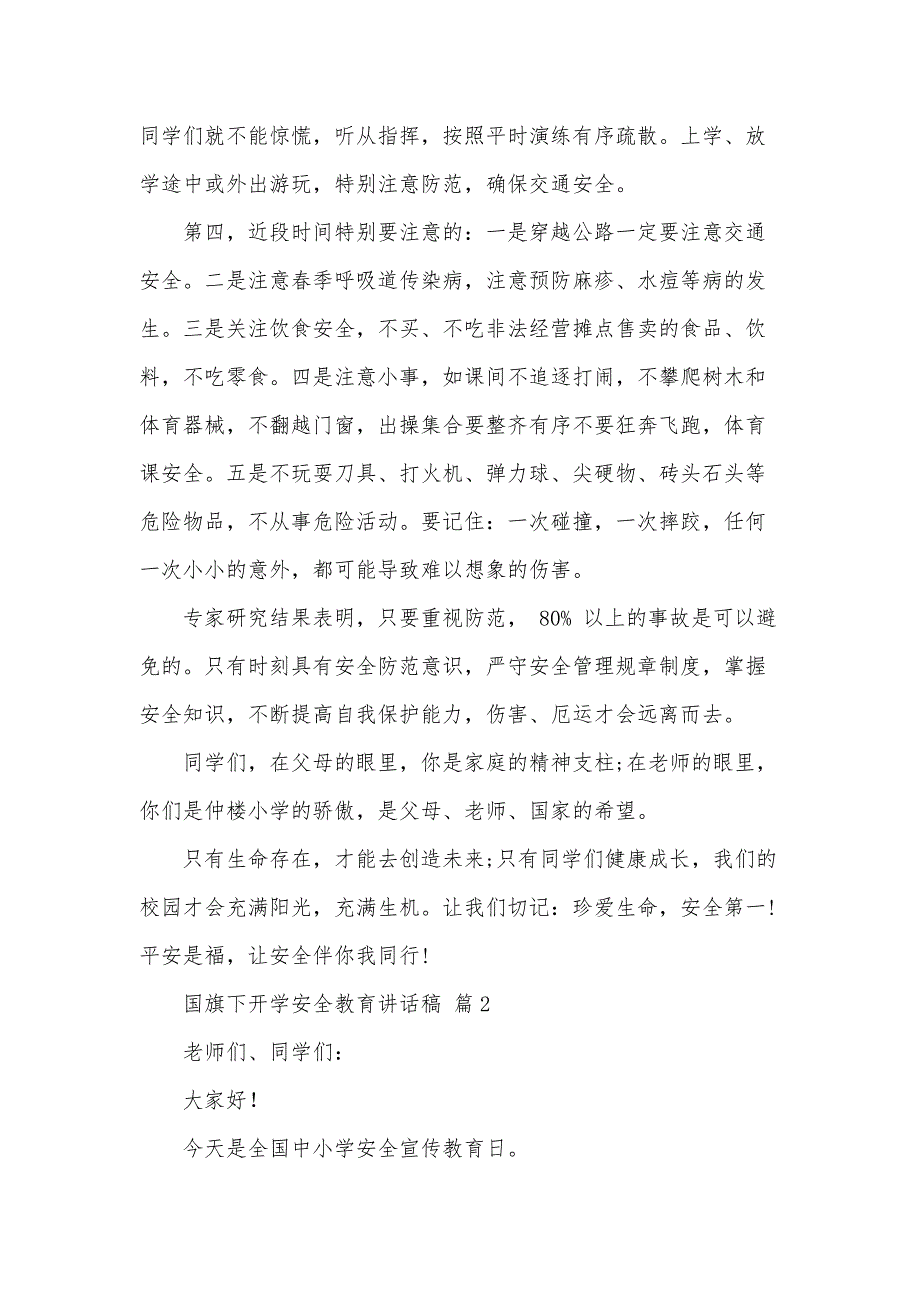 同学们就不能惊慌，听从指挥，按照平时演练有序疏散。上学、放
学途中或外出游玩，特别注意防范，确保交通安全。
第四，近段时间特别要注意的：一是穿越公路一定要注意交通
安全。二是注意春季呼吸道传染病，注意预防麻疹、水痘等病的发
生。三是关注饮食安全，不买、不吃非法经营摊点售卖的食品、饮
料，不吃零食。四是注意小事，如课间不追逐打闹，不攀爬树木和
体育器械，不翻越门窗，出操集合要整齐有序不要狂奔飞跑，体育
课安全。五是不玩耍刀具、打火机、弹力球、尖硬物、砖头石头等
危险物品，不从事危险活动。要记住：一次碰撞，一次摔跤，任何
一次小小的意外，都可能导致难以想象的伤害。
专家研究结果表明，只要重视防范， 80% 以上的事故是可以避
免的。只有时刻具有安全防范意识，严守安全管理规章制度，掌握
安全知识，不断提高自我保护能力，伤害、厄运才会远离而去。
同学们，在父母的眼里，你是家庭的精神支柱;在老师的眼里，
你们是仲楼小学的骄傲，是父母、老师、国家的希望。
只有生命存在，才能去创造未来;只有同学们健康成长，我们的
校园才会充满阳光，充满生机。让我们切记：珍爱生命，安全第一!
平安是福，让安全伴你我同行!
国旗下开学安全教育讲话稿 篇2
老师们、同学们：
大家好!
今天是全国中小学安全宣传教育日。